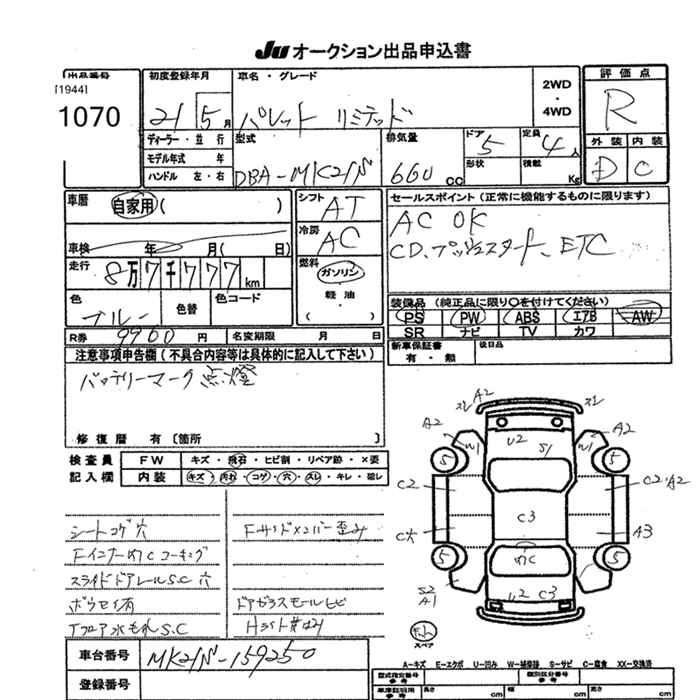 Ju オークション出品申込書
出品番号
[1944]
1070
初度登録年月
21 5月
車名・グレード
パレット リミテッド
2WD
・
4WD
評価点
R
ディーラー・並 行
モデル年式 年
ハンドル 左・右
型式
DBA-MK21S
排気量
660 cc
ドア
5
形状
定員
4人
積載
Kg
外装 内装
D C
車暦
自家用( )
シフト
AT
セールスポイント(正常に機能するものに限ります)
AC OK
CD、プッシュスタート、ETC
冷房
AC
車検 年 月( 日)
走行 8万7千777km
燃料
ガソリン
軽油
( )
色
ブルー
色替
色コード
装備品(純正品に限り○を付けてください)
PS PW ABS エアB AW
SR ナビ TV カワ
R券 9900 円
名変期限 月 日
新車保証書
有・無
後日品
注意事項申告欄(不具合内容等は具体的に記入して下さい)
バッテリーマーク点燈
修復暦 有〔箇所 〕
検査員
記入欄
FW キズ・飛石・ヒビ割・リペア跡・×要
内装 キズ・汚れ・コゲ・穴・スレ・キレ・破レ
シートコゲ穴
Fインナーサビcコーキング
スライドドアレールS.C 穴
ドアガラスモールヒビ
A2 X1 X1
A2 A2
U2 S1
W1 W1
5 5
C2 C2・A2
C3
A3
5 5
S2
A1
U2 C3
スペア
車台番号 MK21S-159250
登録番号
A-キズ E-エクボ U-凹み W-補修跡 S-サビ C-腐食 XX-交換済
型式指定番号
参考
類別区分番号
参考
長さ cm 幅 cm 高さ cm